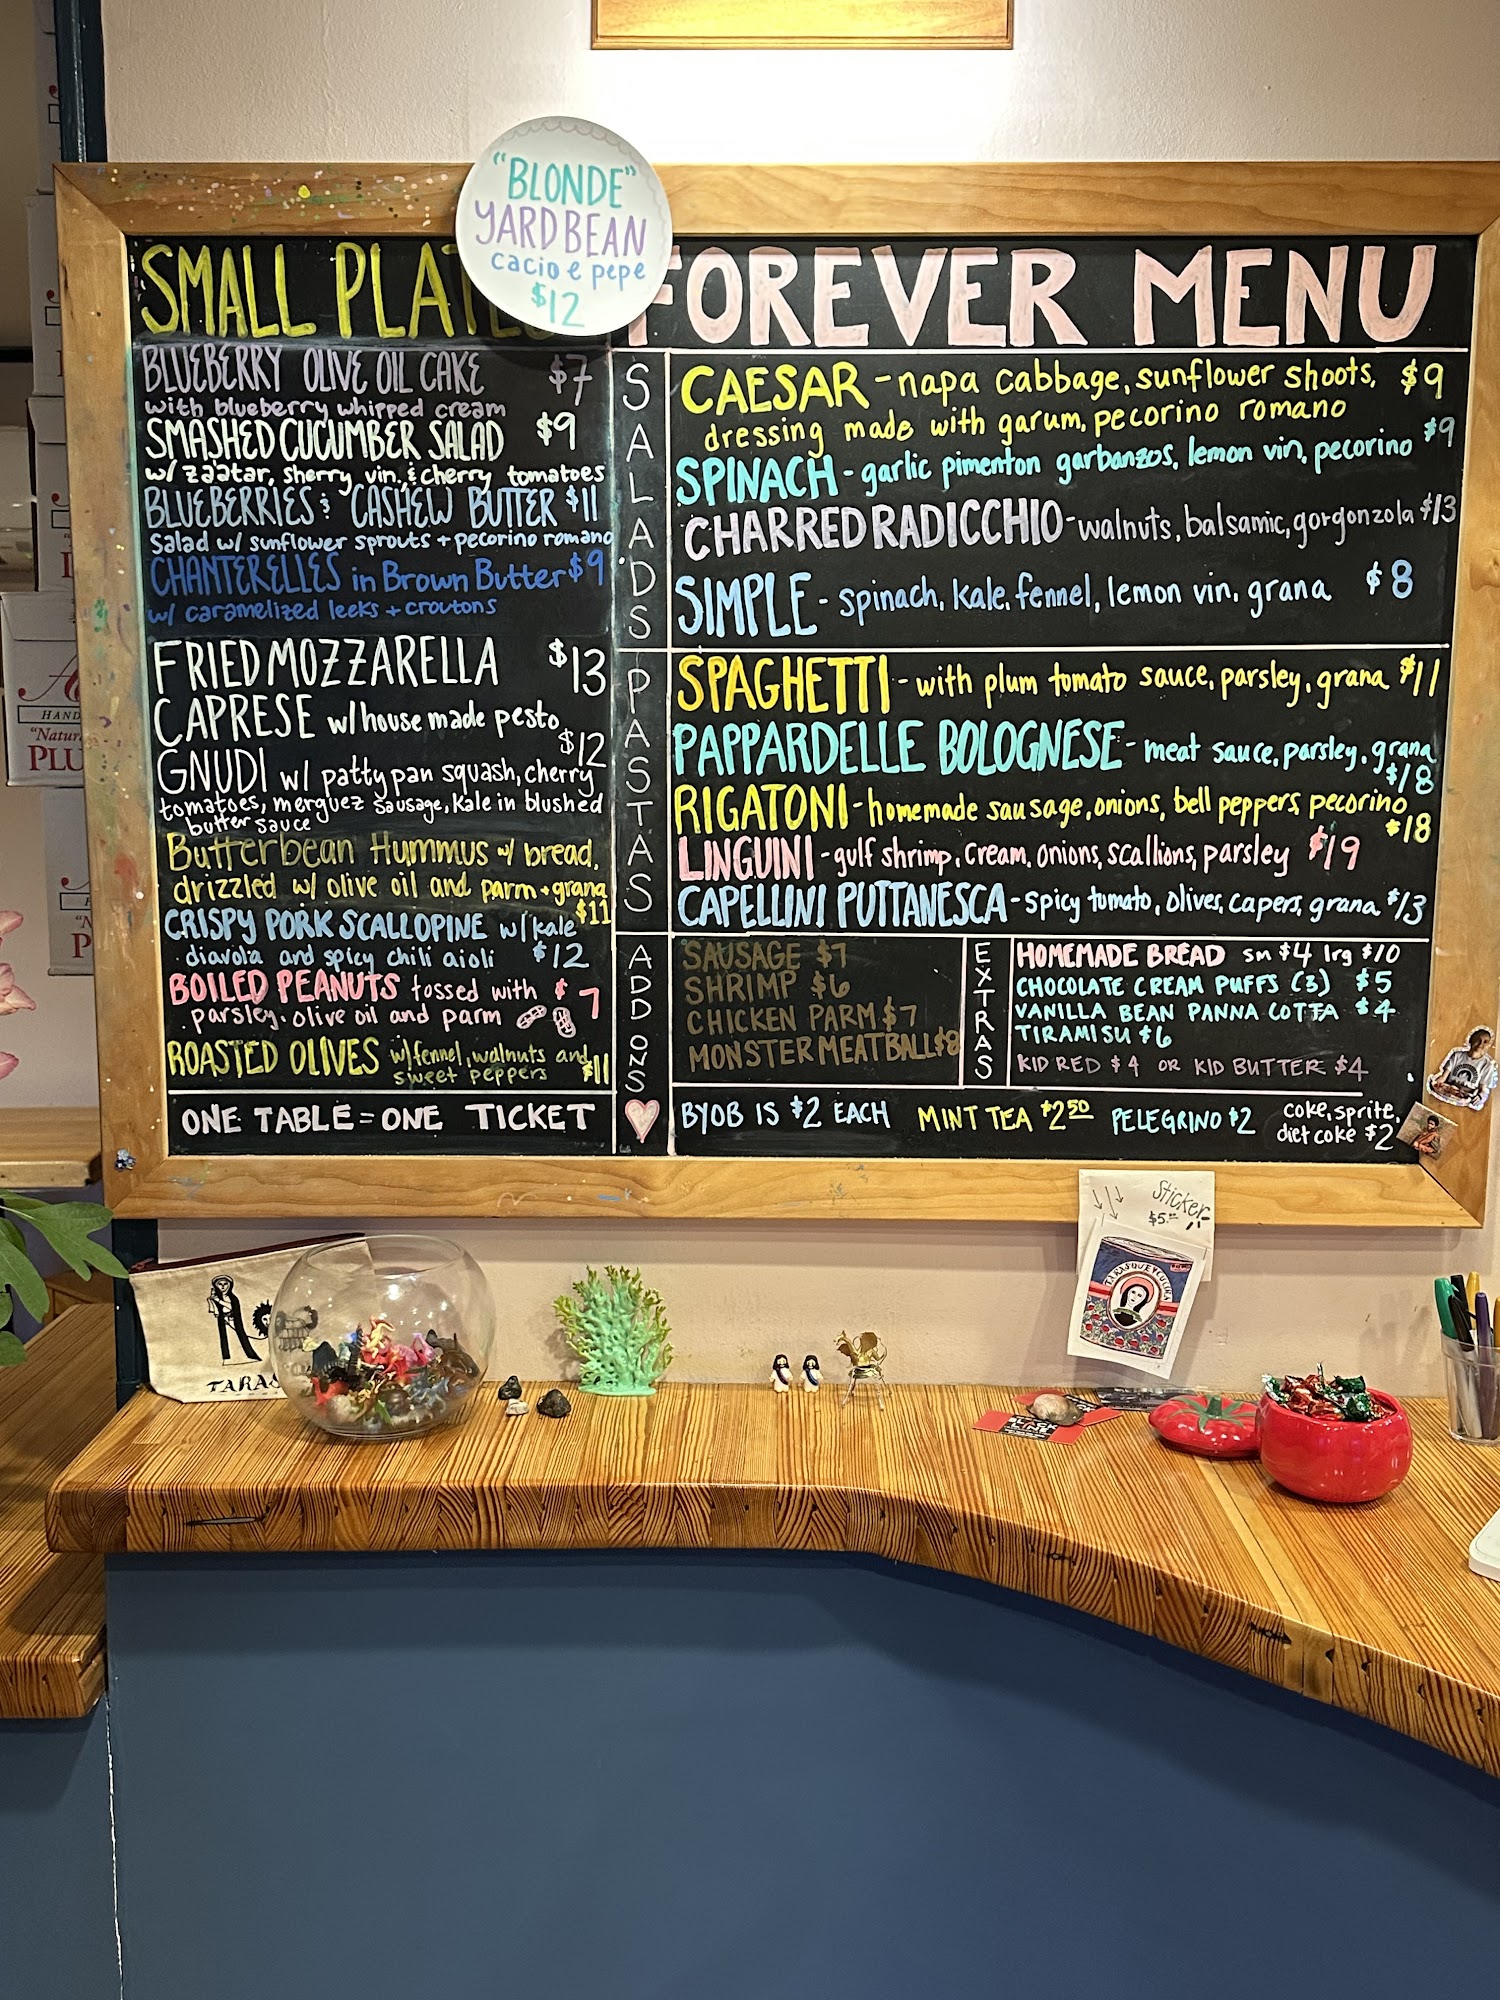 "BLONDE"
YARDBEAN
cacio e pepe
$12
SMALL PLATES
BLUEBERRY OLIVE OIL CAKE $7
with blueberry whipped cream
SMASHED CUCUMBER SALAD $9
w/ za'atar, sherry vin, & cherry tomatoes
BLUEBERRIES & CASHEW BUTTER $11
salad w/ sunflower sprouts + pecorino romano
CHANTERELLES in Brown Butter $9
w/ caramelized leeks + croutons
FRIED MOZZARELLA $13
CAPRESE w/ house made pesto
$12
GNUDI w/ patty pan squash, cherry
tomatoes, merguez sausage, kale in blushed
butter sauce
Butterbean Hummus w/ bread,
drizzled w/ olive oil and parm + grana
$11
CRISPY PORK SCALLOPINE w/ kale
diavola and spicy chili aioli $12
BOILED PEANUTS tossed with $7
parsley, olive oil and parm
ROASTED OLIVES w/ fennel, walnuts and
sweet peppers $11
ONE TABLE = ONE TICKET
FOREVER MENU
SALADS
CAESAR - napa cabbage, sunflower shoots, $9
dressing made with garum, pecorino romano
SPINACH - garlic pimenton garbanzos, lemon vin, pecorino $9
CHARRED RADICCHIO - walnuts, balsamic, gorgonzola $13
SIMPLE - spinach, kale, fennel, lemon vin, grana $8
PASTAS
SPAGHETTI - with plum tomato sauce, parsley, grana $11
PAPPARDELLE BOLOGNESE - meat sauce, parsley, grana
$18
RIGATONI - homemade sausage, onions, bell peppers, pecorino
$18
LINGUINI - gulf shrimp, cream, onions, scallions, parsley $19
CAPELLINI PUTTANESCA - spicy tomato, olives, capers, grana $13
ADD ONS
SAUSAGE $7
SHRIMP $6
CHICKEN PARM $7
MONSTER MEATBALL $8
EXTRAS
HOMEMADE BREAD sm $4 lrg $10
CHOCOLATE CREAM PUFFS (3) $5
VANILLA BEAN PANNA COTTA $4
TIRAMISU $6
KID RED $4 OR KID BUTTER $4
BYOB IS $2 EACH MINT TEA $2.50 PELEGRINO $2 coke, sprite,
diet coke $2
Sticker
$5.00
TARASQUE CUCINA
TARAS
HAND
"Natur
PLU